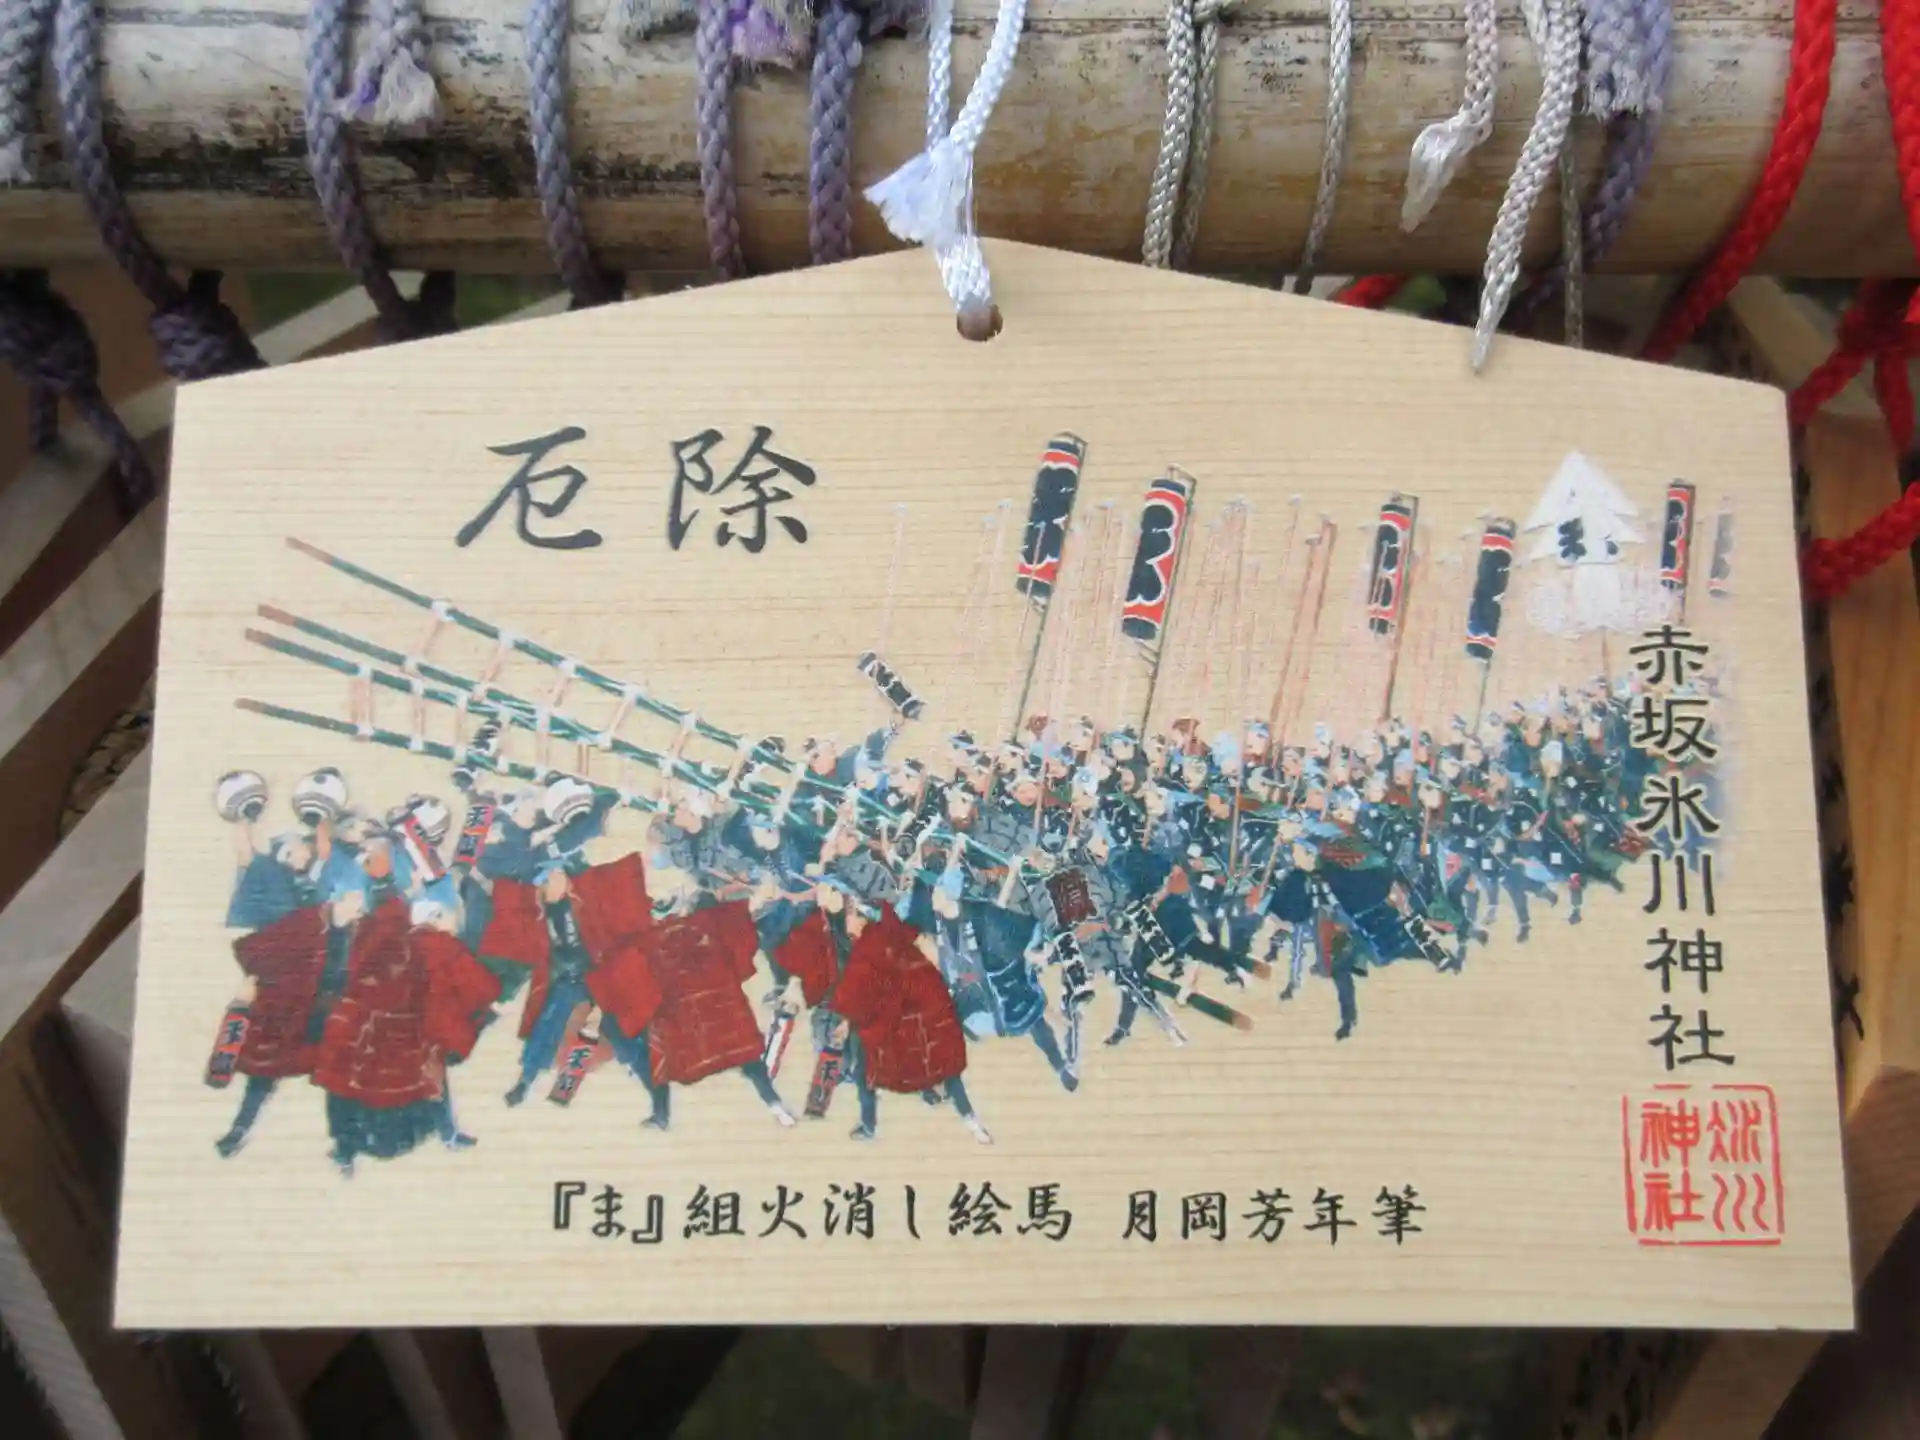 厄除
赤坂氷川神社
『ま』組火消し絵馬 月岡芳年筆
氷川
神社